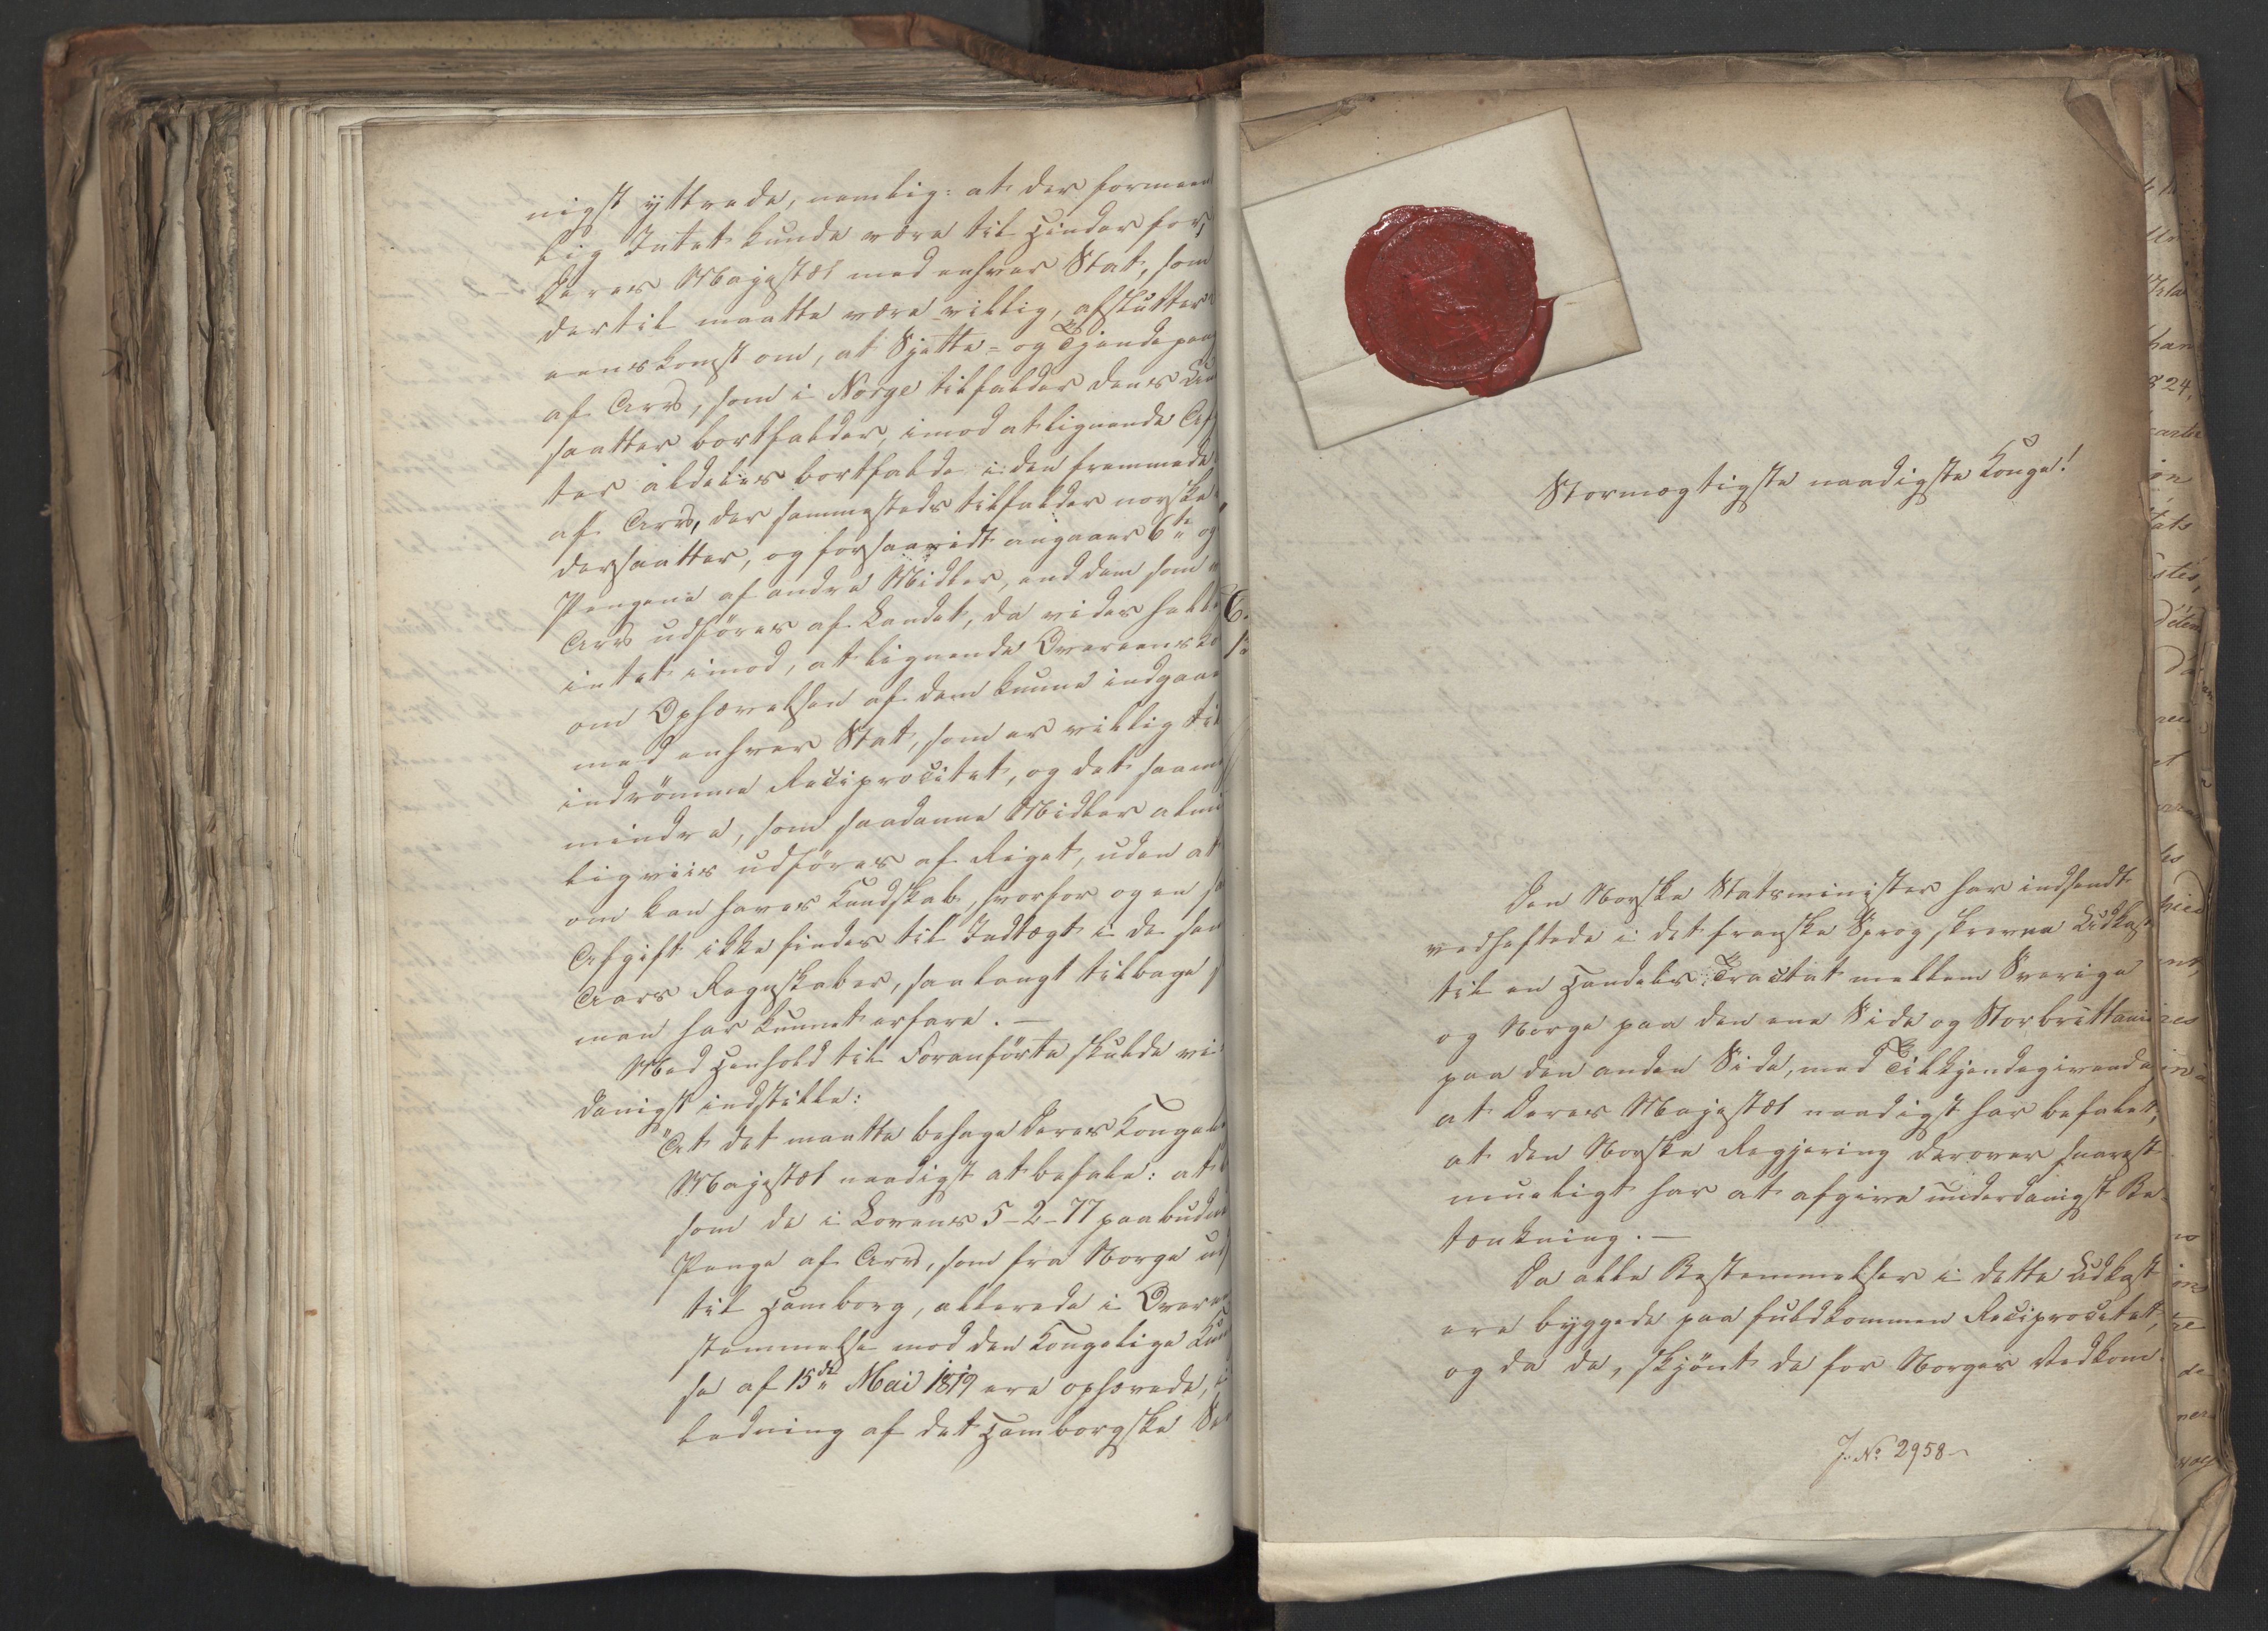 nigst yttrede, nemlig: at der formeen
lig Intet kunde være til Hinder for,
Deres Majestæt med enhver Stat, som
dertil maatte være villig, afslutter
eenskomst om, at Sjette- og Tiendepen
af Arv, som i Norge tilfalder dens Un
saatter bortfalder, imod at lignende Af
ter aldeles bortfalde i den fremmede
af Arv, der sammesteds tilfalder norske
dersaatter, og forsaavidt angaaer 6te og
Pengene af andre Midler, end dem som
Arv udføres af Landet, da vides heller
intet imod, at lignende Overeensko
om Ophævelsen af dem kunne indgaaes
med enhver Stat, som er villig til
indrömme Reciprocitet, og det saame
mindre, som saadanne Midler almi
ligviis udföres af Riget, uden at
om kan haves Kundskab, hvorfor ogsaa
Afgift ikke findes til Indtægt i de sen
Aars Regnskaber, saa langt tilbage
man har kunnet erfare. —
Med Henhold til Foranförte skulde vi
danigst indstille:
"At det maatte behage Deres Kongel
Majestæt naadigst at befale: at
som de i Lovens 5-2-77 paabudne
Penge af Arv, som fra Norge ud
til Hamborg, allerede i Overe
stemmelse med den Kongelige Kun
se af 15de Mai 1819 ere ophævede, i
ledning af det Hamborgske Se
Stormægtigste naadigste Konge!
Den Norske Statsminister har indsendt
vedheftede i det franske Sprog skrevne Udkast
til en Handels-Tractat mellem Sverige
og Norge paa den ene Side og Storbrittani
paa den anden Side, med Tilkjendegivende
at Deres Majestæt naadigst har befalet,
at den Norske Regjering derover snarest
mueligt har at afgive underdanigst Be-
tænkning. —
Da alle Bestemmelser i dette Udkast
ere byggede paa fuldkommen Reciprocitet,
og da de, skjönt de for Norges Vedkom-
J. No 2958